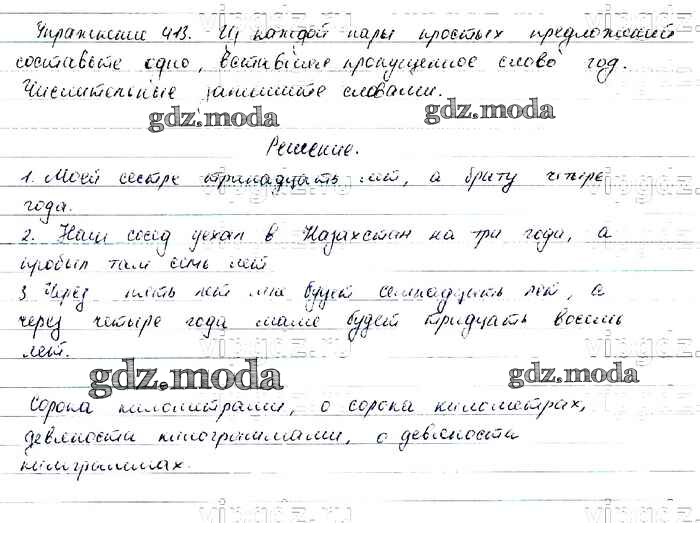 Упражнение 413. Из каждой пары простых предложений
составьте одно, вставляя пропущенное слово год.
Числительные запишите словами.
gdz.moda gdz.moda
Решение.
1. Моей сестре тринадцать лет, а брату четыре
года.
2. Наш сосед уехал в Казахстан на три года, а
пробыл там семь лет
3. Через пять лет мне будет семнадцать лет, а
через четыре года маме будет тридцать восемь
лет.
gdz.moda gdz.moda
Сорока километрами, о сорока километрах,
девяноста килограммами, о девяноста
килограммах.
vipgdz.ru vipgdz.ru